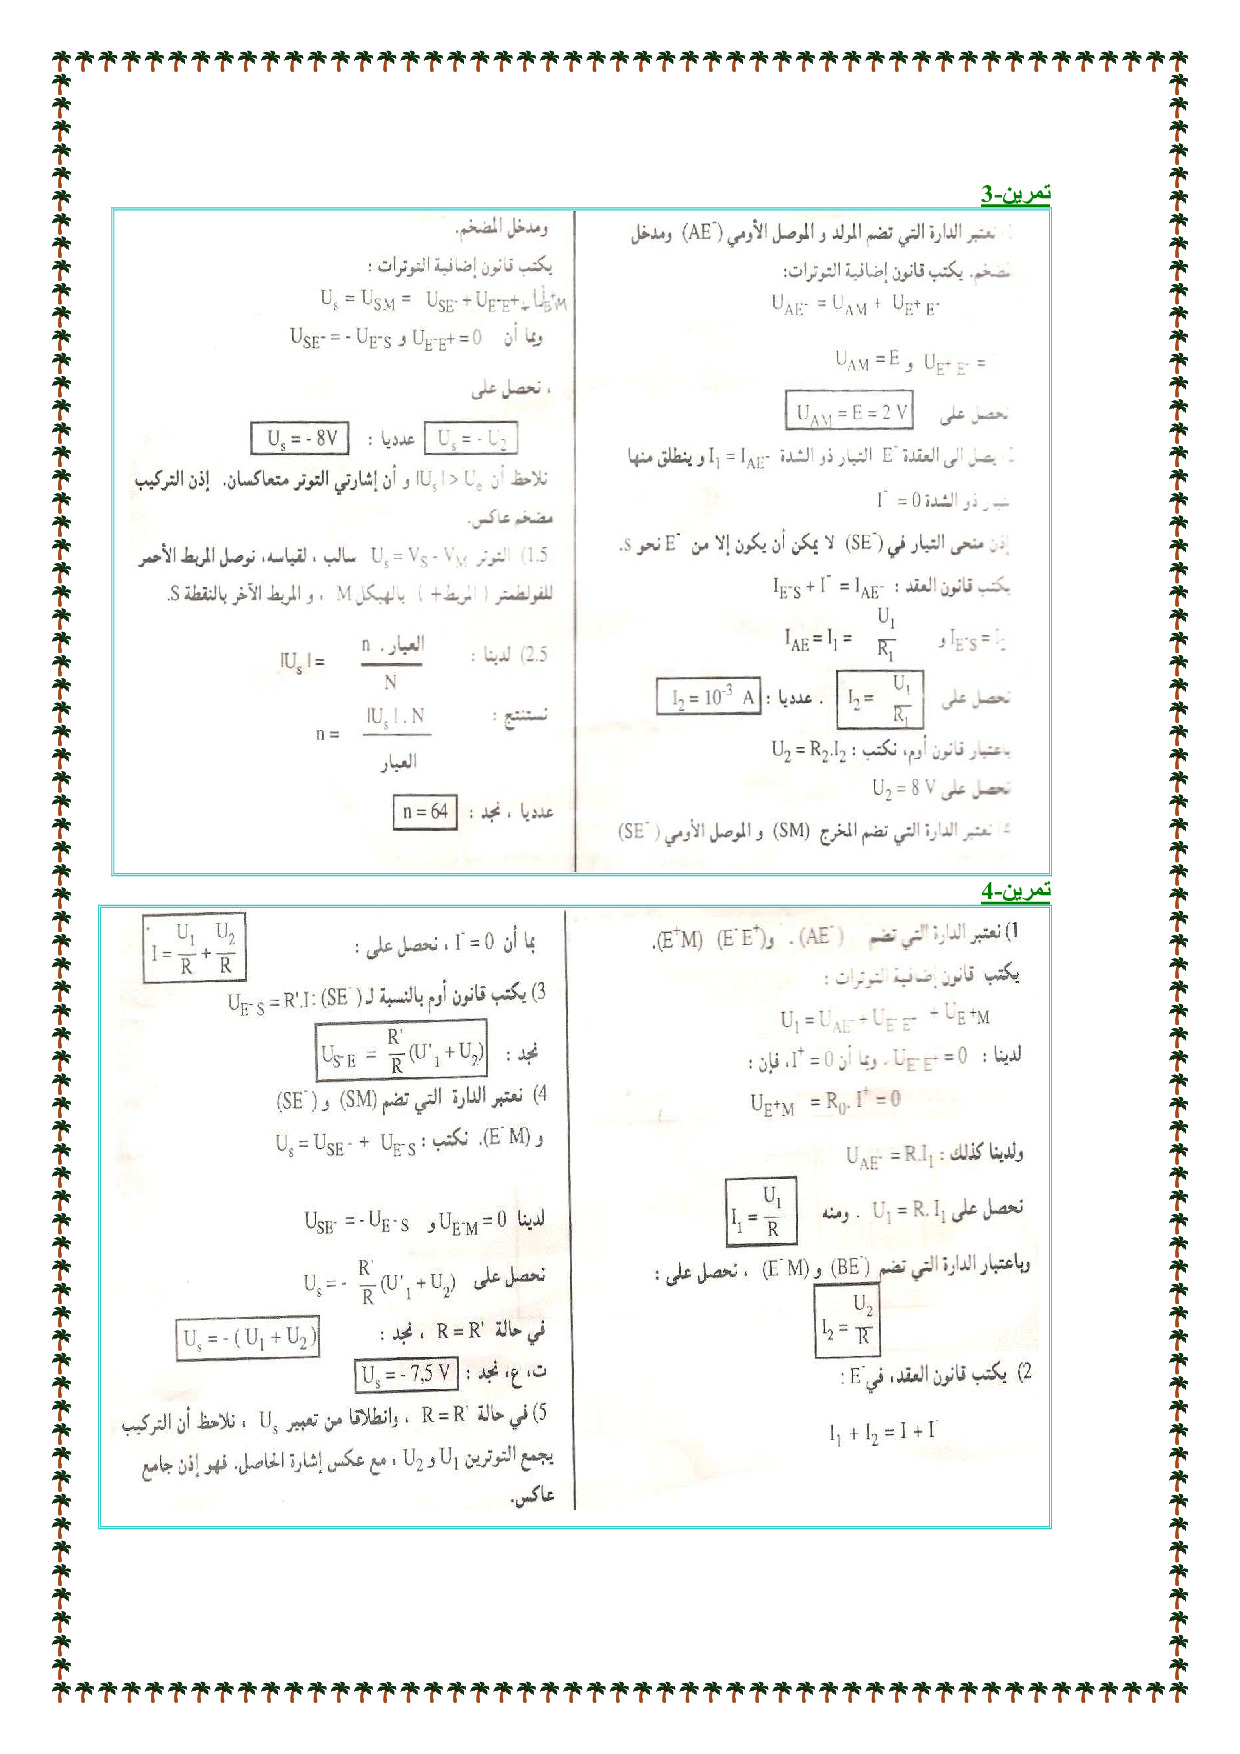 تمرين-3
نعتبر الدارة التي تضم المولد و الموصل الأومي (AE⁻) ومدخل
يكتب قانون إضافية التوترات:
U_AE⁻ = U_AM + U_E⁺E⁻
U_AM = E و U_E⁺E⁻ =
نحصل على U_AM = E = 2 V
يصل الى العقدة E⁻ التيار ذو الشدة I₁ = I_AE⁻ و ينطلق منها
ذو الشدة I⁻ = 0
إذن منحى التيار في (SE⁻) لا يمكن أن يكون إلا من E⁻ نحو S.
يكتب قانون العقد : I_E⁻S + I⁻ = I_AE⁻
I_E⁻S = I₂ و I_AE = I₁ = U₁/R₁
نحصل على I₂ = U₁/R₁ . عدديا : I₂ = 10⁻³ A
باعتبار قانون أوم، نكتب : U₂ = R₂.I₂
نحصل على U₂ = 8 V
نعتبر الدارة التي تضم المخرج (SM) و الموصل الأومي (SE⁻)
ومدخل المضخم.
يكتب قانون إضافية التوترات :
U_s = U_SM = U_SE⁻ + U_E⁻E⁺ + U_E⁺M
وبما أن U_E⁻E⁺ = 0 و U_SE⁻ = - U_E⁻S
، نحصل على
U_s = - U₂ عدديا : U_s = - 8V
نلاحظ أن |U_s| > U_e و أن إشارتي التوتر متعاكسان. إذن التركيب
مضخم عاكس.
1.5) التوتر U_s = V_S - V_M سالب ، لقياسه، نوصل المربط الأحمر
للفولطمتر ( المربط + ) بالهيكل M ، و المربط الآخر بالنقطة S.
2.5) لدينا : |U_s| = العيار . n / N
نستنتج : n = |U_s| . N / العيار
عدديا ، نجد : n = 64
تمرين-4
1) نعتبر الدارة التي تضم (AE⁻) . و(E⁻E⁺) (E⁺M).
يكتب قانون إضافية التوترات :
U₁ = U_AE⁻ + U_E⁻E⁻ + U_E⁺M
لدينا : U_E⁻E⁻ = 0 . وبما أن I⁺ = 0، فإن :
U_E⁺M = R₀. I⁺ = 0
ولدينا كذلك : U_AE⁻ = R.I₁
نحصل على U₁ = R. I₁ . ومنه I₁ = U₁/R
وباعتبار الدارة التي تضم (BE⁻) و (E⁻M) ، نحصل على :
I₂ = U₂/R
2) يكتب قانون العقد، في E⁻ :
I₁ + I₂ = I + I⁻
بما أن I⁻ = 0 ، نحصل على : I = U₁/R + U₂/R
3) يكتب قانون أوم بالنسبة لـ (SE⁻) : U_E⁻S = R'.I
نجد : U_S⁻E = R'/R (U'₁ + U₂)
4) نعتبر الدارة التي تضم (SM) و (SE⁻)
و (E⁻M). نكتب : U_s = U_SE⁻ + U_E⁻S
لدينا U_E⁻M = 0 و U_SE⁻ = - U_E⁻S
نحصل على U_s = - R'/R (U'₁ + U₂)
في حالة R = R' ، نجد : U_s = - ( U₁ + U₂ )
ت، ع، نجد : U_s = - 7,5 V
5) في حالة R = R' ، وانطلاقا من تعبير U_s ، نلاحظ أن التركيب
يجمع التوترين U₁ و U₂ ، مع عكس إشارة الحاصل. فهو إذن جامع
عاكس.